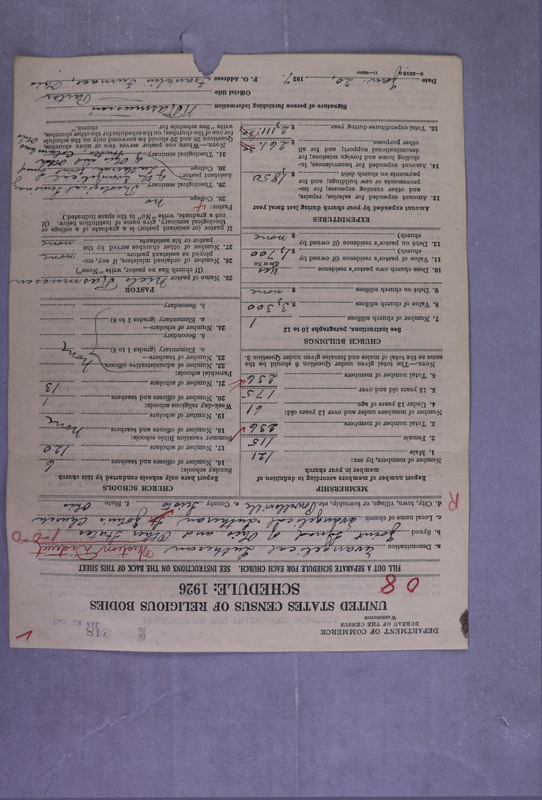 DEPARTMENT OF COMMERCE
BUREAU OF THE CENSUS
WASHINGTON
318
UNITED STATES CENSUS OF RELIGIOUS BODIES
SCHEDULE: 1926
08
FILL OUT A SEPARATE SCHEDULE FOR EACH CHURCH. SEE INSTRUCTIONS ON THE BACK OF THIS SHEET
a. Denomination Evangelical Lutheran Western District
b. Synod Joint Synod of Ohio and Other States 1-0-0
c. Local name of church Evangelical Lutheran St John Church
d. City, town, village, or township, etc. Powellsville e. County Scioto f. State Ohio
R
MEMBERSHIP
Report number of members according to definition of member in your church
Number of members, by sex:
1. Male 121
2. Female 115
3. Total number of members 236
Number of members under and over 13 years old:
4. Under 13 years of age 61
5. 13 years old and over 175
6. Total number of members 236
NOTE.—The total given under Question 6 should be the same as the total of males and females given under Question 3.
CHURCH BUILDINGS
See instructions, paragraphs 10 to 12
7. Number of church edifices 1
8. Value of church edifices $ 3,300
9. Debt on church edifices $ none
10. Does church own pastor's residence Yes
11. Value of pastor's residence (if owned by church) $ 1,700
12. Debt on pastor's residence (if owned by church) $ none
EXPENDITURES
Amount expended by your church during last fiscal year
13. Amount expended for salaries, repairs, and other running expenses; for improvements or new buildings; and for payments on church debt $ 1850
14. Amount expended for benevolences, including home and foreign missions; for denominational support; and for all other purposes $ 261.30
15. Total expenditures during year $ 2,111.30
CHURCH SCHOOLS
Report here only schools conducted by this church
Sunday schools:
16. Number of officers and teachers 6
17. Number of scholars 120
Summer vacation Bible schools:
18. Number of officers and teachers none
19. Number of scholars
Week-day religious schools:
20. Number of officers and teachers 1
21. Number of scholars 13
Parochial schools:
22. Number of administrative officers none
23. Number of teachers—
a. Elementary (grades 1 to 8)
b. Secondary
24. Number of scholars—
a. Elementary (grades 1 to 8)
b. Secondary
PASTOR
25. Name of pastor Niels Rasmussen
(If church has no pastor, write "None")
26. Number of ordained ministers, if any, employed as assistant pastors none
27. Number of other churches served by the pastor or his assistants none
If pastor or assistant pastor is a graduate of a college or theological seminary, give name of institution below. (If not a graduate, write "No" in the space indicated.)
Pastor:
28. College no
29. Theological seminary
Assistant pastor:
30. College
31. Theological seminary
NOTE.—When one pastor serves two or more churches, Questions 28 and 29 should be answered only on the schedule for one of the churches; on the schedules for the other churches, write "See schedule for church."
Signature of person furnishing information N Rasmussen
Official title Pastor
P. O. Address Franklin Furnace, Ohio
Date Jan. 20, 1927.